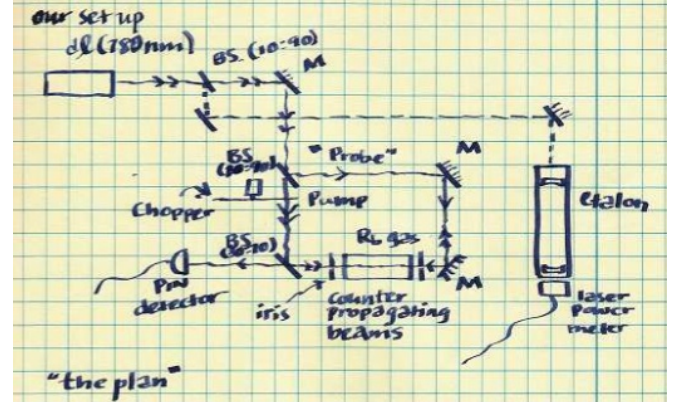 our set up
dl (780nm)
BS (10-90)
M
BS
(10-90)
"Probe"
M
Chopper
Pump
etalon
BS
Rb gas
PIN
detector
iris
counter
propagating
beams
M
laser
power
meter
"the plan"